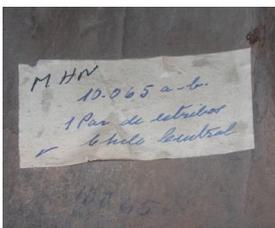 MHN
10.065 a-b.
1 Par de estribos
Chile Central
10065